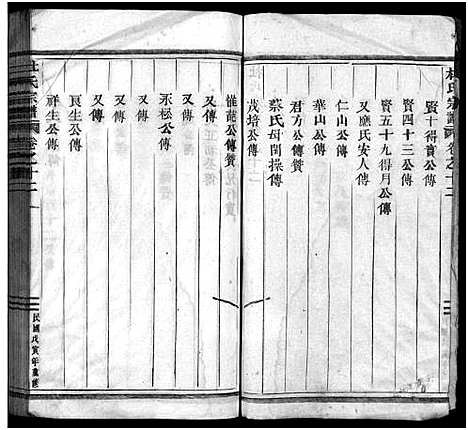 杜氏宗譜 卷之十二
賢十得首公傳
賢四十三公傳
賢五十九得月公傳
又應氏安人傳
仁山公傳
華山公傳
君方公傳
蔡氏母閨操傳
茂培公傳
惟範公傳贊
又傳
永松公傳贊
又傳
又傳
良生公傳
祥生公傳
杜氏宗譜 卷之十二 一
民國戊寅年重修